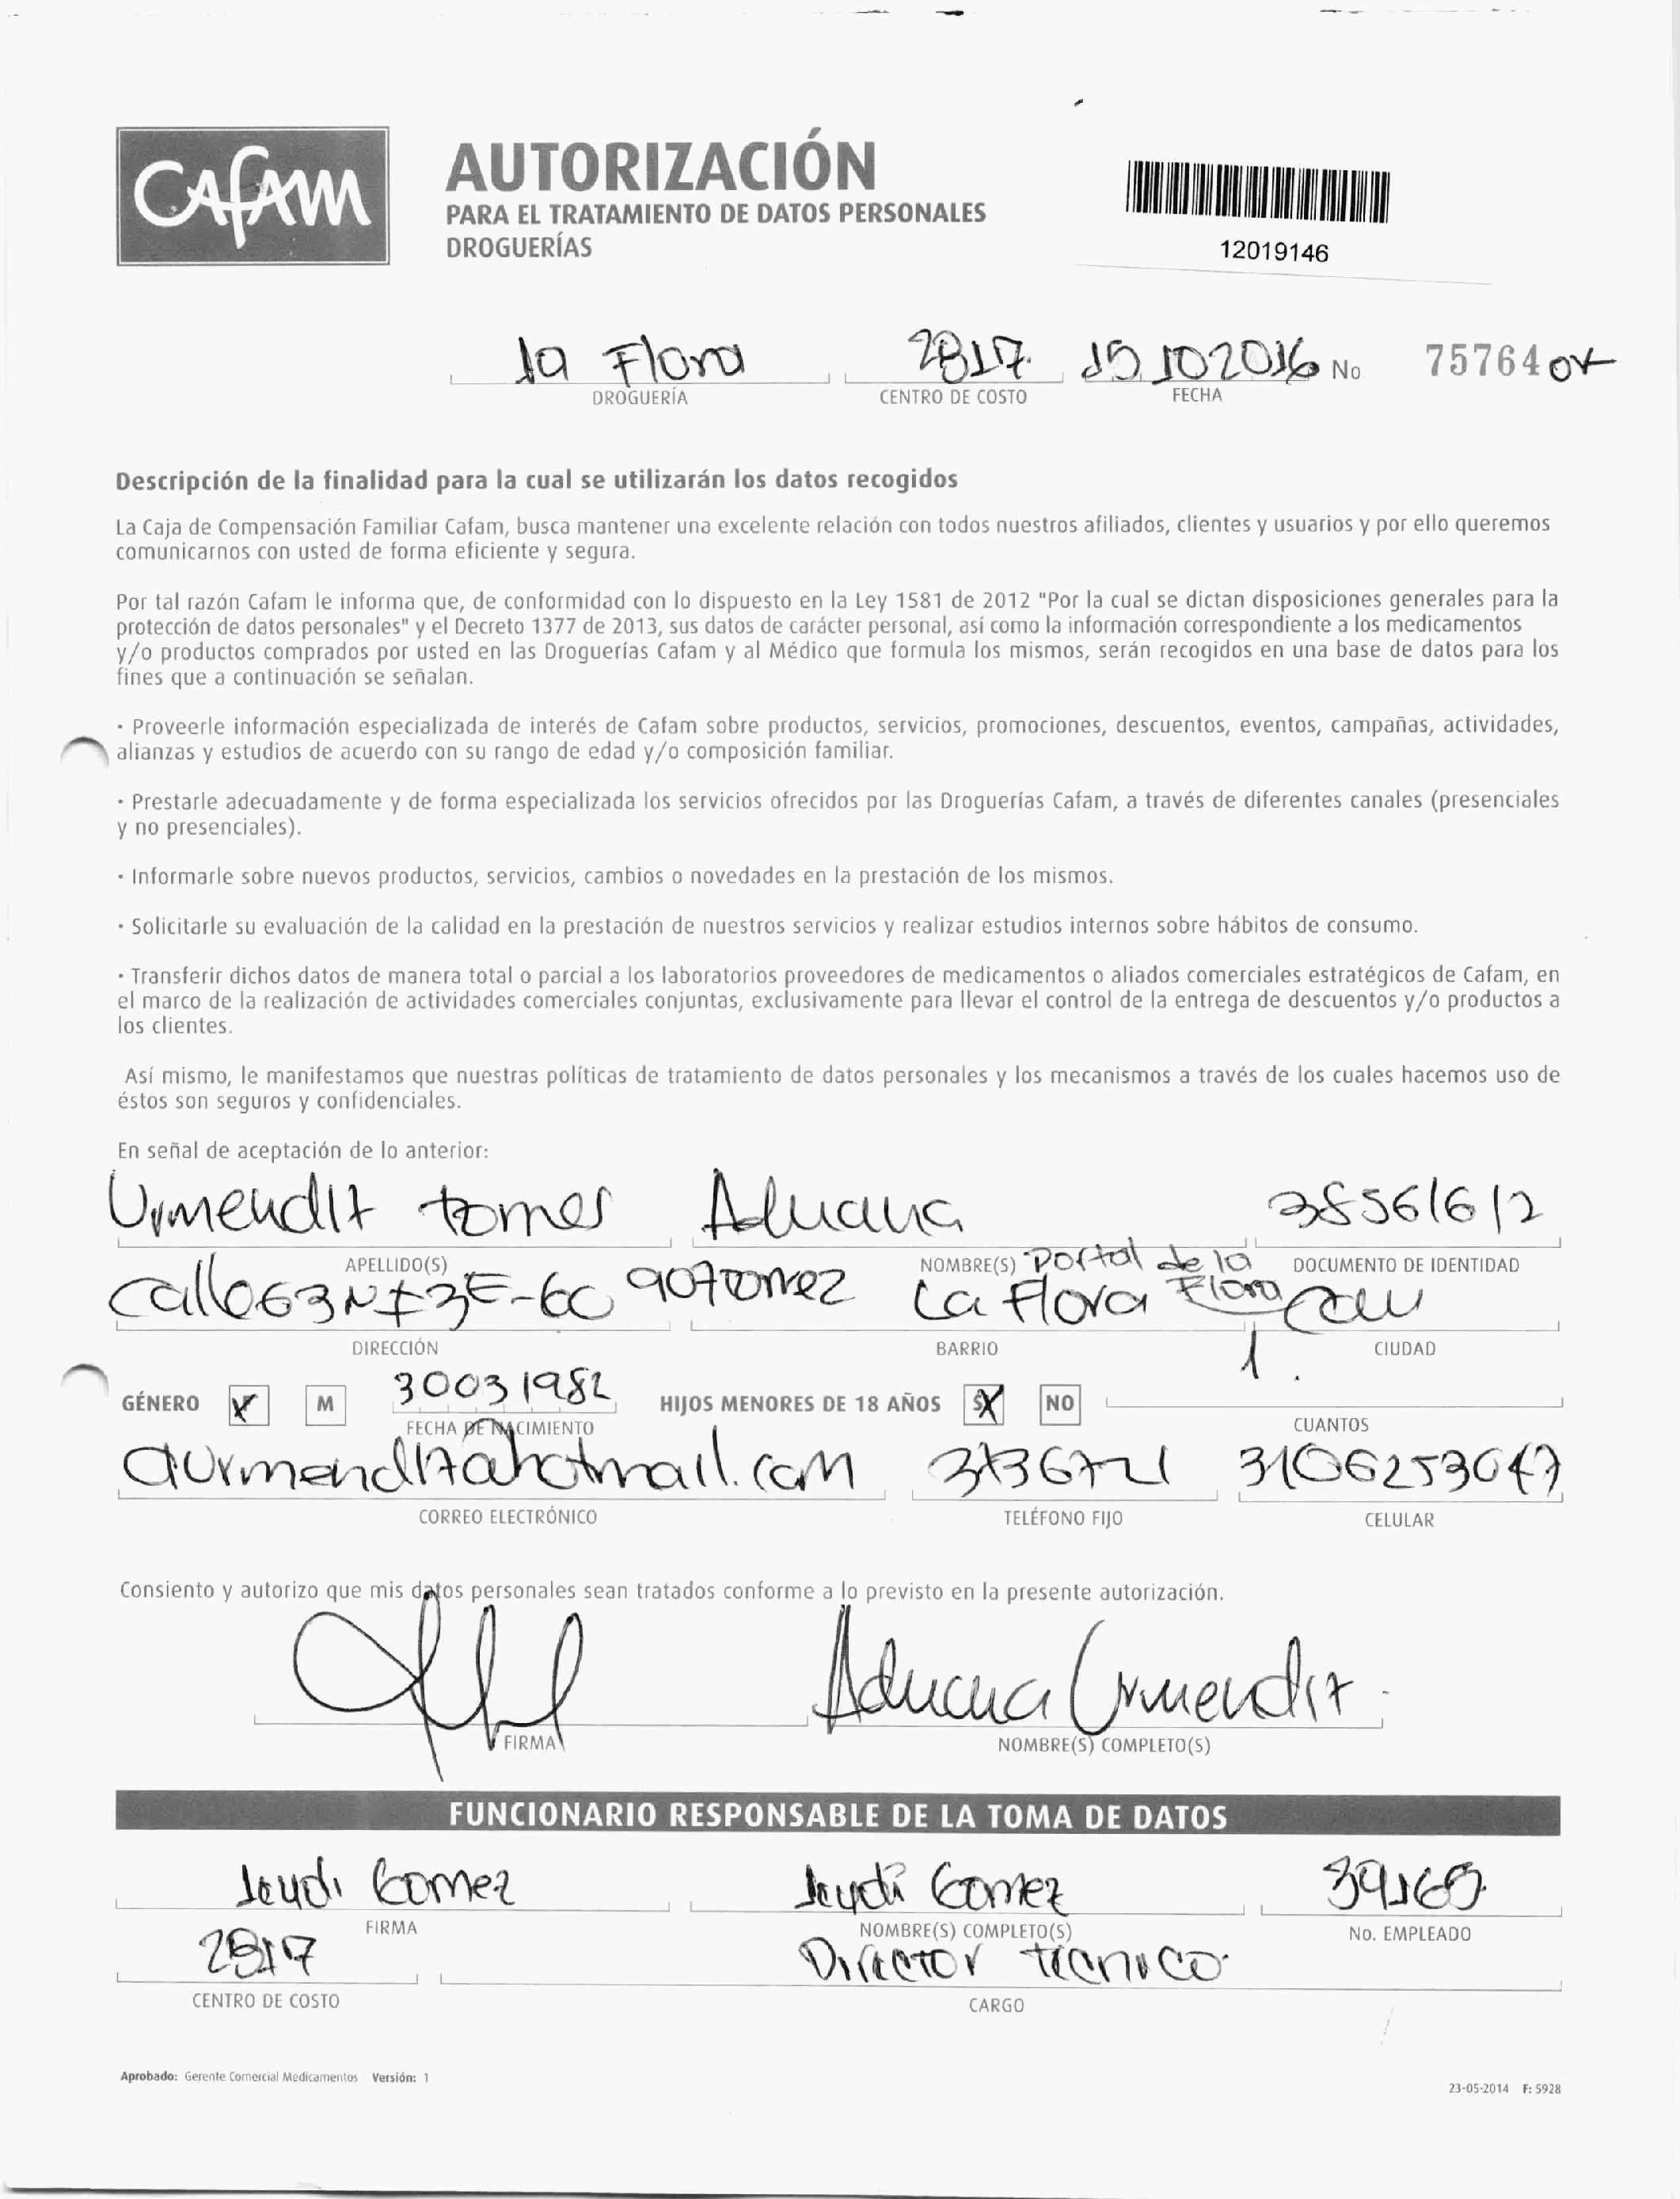 CAFAM
AUTORIZACIÓN
PARA EL TRATAMIENTO DE DATOS PERSONALES
DROGUERÍAS
12019146
la Flora 2817 15 10 2016 No 75764 OK
DROGUERÍA CENTRO DE COSTO FECHA
Descripción de la finalidad para la cual se utilizarán los datos recogidos
La Caja de Compensación Familiar Cafam, busca mantener una excelente relación con todos nuestros afiliados, clientes y usuarios y por ello queremos
comunicarnos con usted de forma eficiente y segura.
Por tal razón Cafam le informa que, de conformidad con lo dispuesto en la Ley 1581 de 2012 "Por la cual se dictan disposiciones generales para la
protección de datos personales" y el Decreto 1377 de 2013, sus datos de carácter personal, así como la información correspondiente a los medicamentos
y/o productos comprados por usted en las Droguerías Cafam y al Médico que formula los mismos, serán recogidos en una base de datos para los
fines que a continuación se señalan.
· Proveerle información especializada de interés de Cafam sobre productos, servicios, promociones, descuentos, eventos, campañas, actividades,
alianzas y estudios de acuerdo con su rango de edad y/o composición familiar.
· Prestarle adecuadamente y de forma especializada los servicios ofrecidos por las Droguerías Cafam, a través de diferentes canales (presenciales
y no presenciales).
· Informarle sobre nuevos productos, servicios, cambios o novedades en la prestación de los mismos.
· Solicitarle su evaluación de la calidad en la prestación de nuestros servicios y realizar estudios internos sobre hábitos de consumo.
· Transferir dichos datos de manera total o parcial a los laboratorios proveedores de medicamentos o aliados comerciales estratégicos de Cafam, en
el marco de la realización de actividades comerciales conjuntas, exclusivamente para llevar el control de la entrega de descuentos y/o productos a
los clientes.
Así mismo, le manifestamos que nuestras políticas de tratamiento de datos personales y los mecanismos a través de los cuales hacemos uso de
éstos son seguros y confidenciales.
En señal de aceptación de lo anterior:
Urmendiz 38561612
APELLIDO(S) NOMBRE(S) Portal de la Flora DOCUMENTO DE IDENTIDAD
La Flora
DIRECCIÓN BARRIO CIUDAD
GÉNERO M 30031982 HIJOS MENORES DE 18 AÑOS SI NO 1.
FECHA DE NACIMIENTO CUANTOS
3106253047
CORREO ELECTRÓNICO TELÉFONO FIJO CELULAR
Consiento y autorizo que mis datos personales sean tratados conforme a lo previsto en la presente autorización.
Urmendiz
FIRMA NOMBRE(S) COMPLETO(S)
FUNCIONARIO RESPONSABLE DE LA TOMA DE DATOS
Leydi Gomez Leydi Gomez 39169
FIRMA NOMBRE(S) COMPLETO(S) No. EMPLEADO
2817 Director tecnico
CENTRO DE COSTO CARGO
Aprobado: Gerente Comercial Medicamentos Versión: 1
23-05-2014 F: 5928